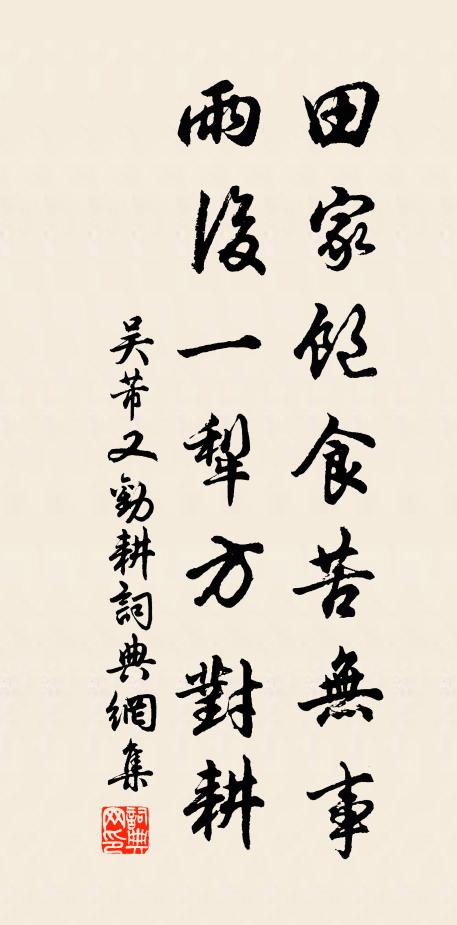 田家飽食苦無事
雨後一犁方對耕
吴芾又勸耕詞典網集
詞典网印